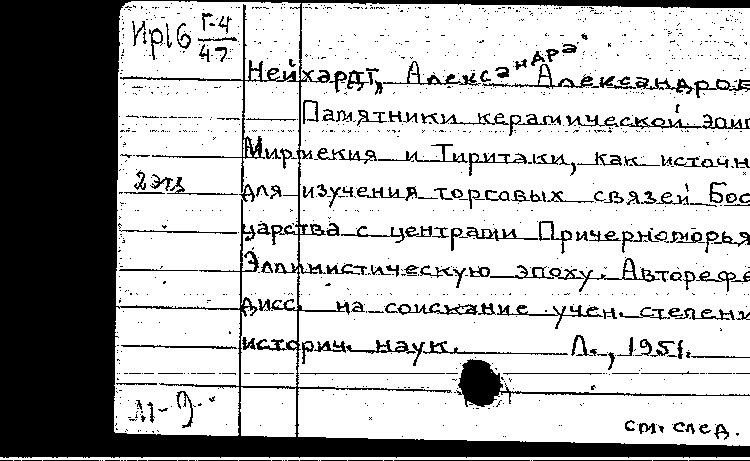 Ир16 Г-4
47
Нейхардт, Александра Александров
Памятники керамической эпиг
Мирмекия и Тиритаки, как источн
2 экз
для изучения торговых связей Бос
царства с центрами Причерноморья
Эллинистическую эпоху. Авторефе
дисс. на соискание учен. степени
историч. наук. Л., 1951.
см. след.